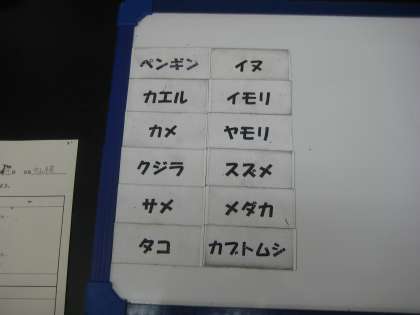 ペンギン イヌ
カエル イモリ
カメ ヤモリ
クジラ スズメ
サメ メダカ
タコ カブトムシ